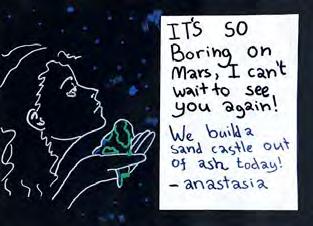 IT'S SO
Boring on
Mars, I can't
wait to see
you again!
We build a
sand castle out
of ash today!
- anastasia